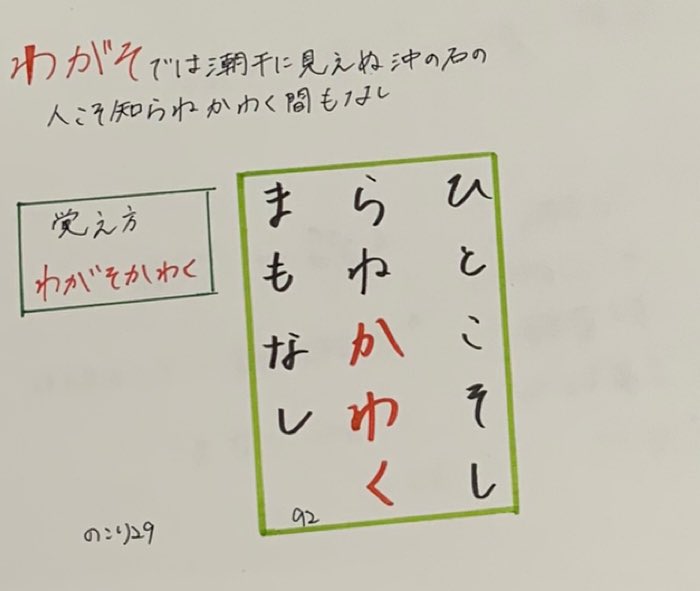 わがそでは潮干に見えぬ沖の石の
人こそ知らねかわく間もなし
覚え方
わがそかわく
ひとこそし
らねかわく
まもなし
92
のこり29